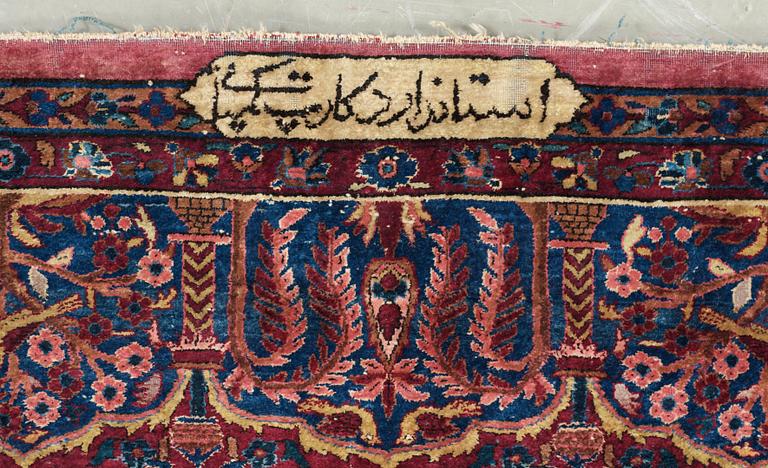 استاندارد کارپت کمپنی